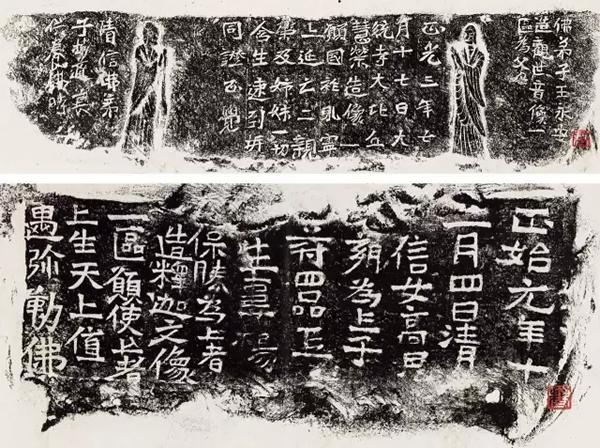 佛弟子王永安
造觀世音像一
區為父母
正光三年七
月十七日大
統寺大比丘
慧榮造像一
願國祚永寧
上延亡二親
弟及姊妹一切
含生速到
同證正覺
清信佛弟
子
正始元年十
二月四日清
信女高
為亡子
四品正
生
保勝為亡者
造釋迦文像
一區願使亡者
上生天上值
遇弥勒佛